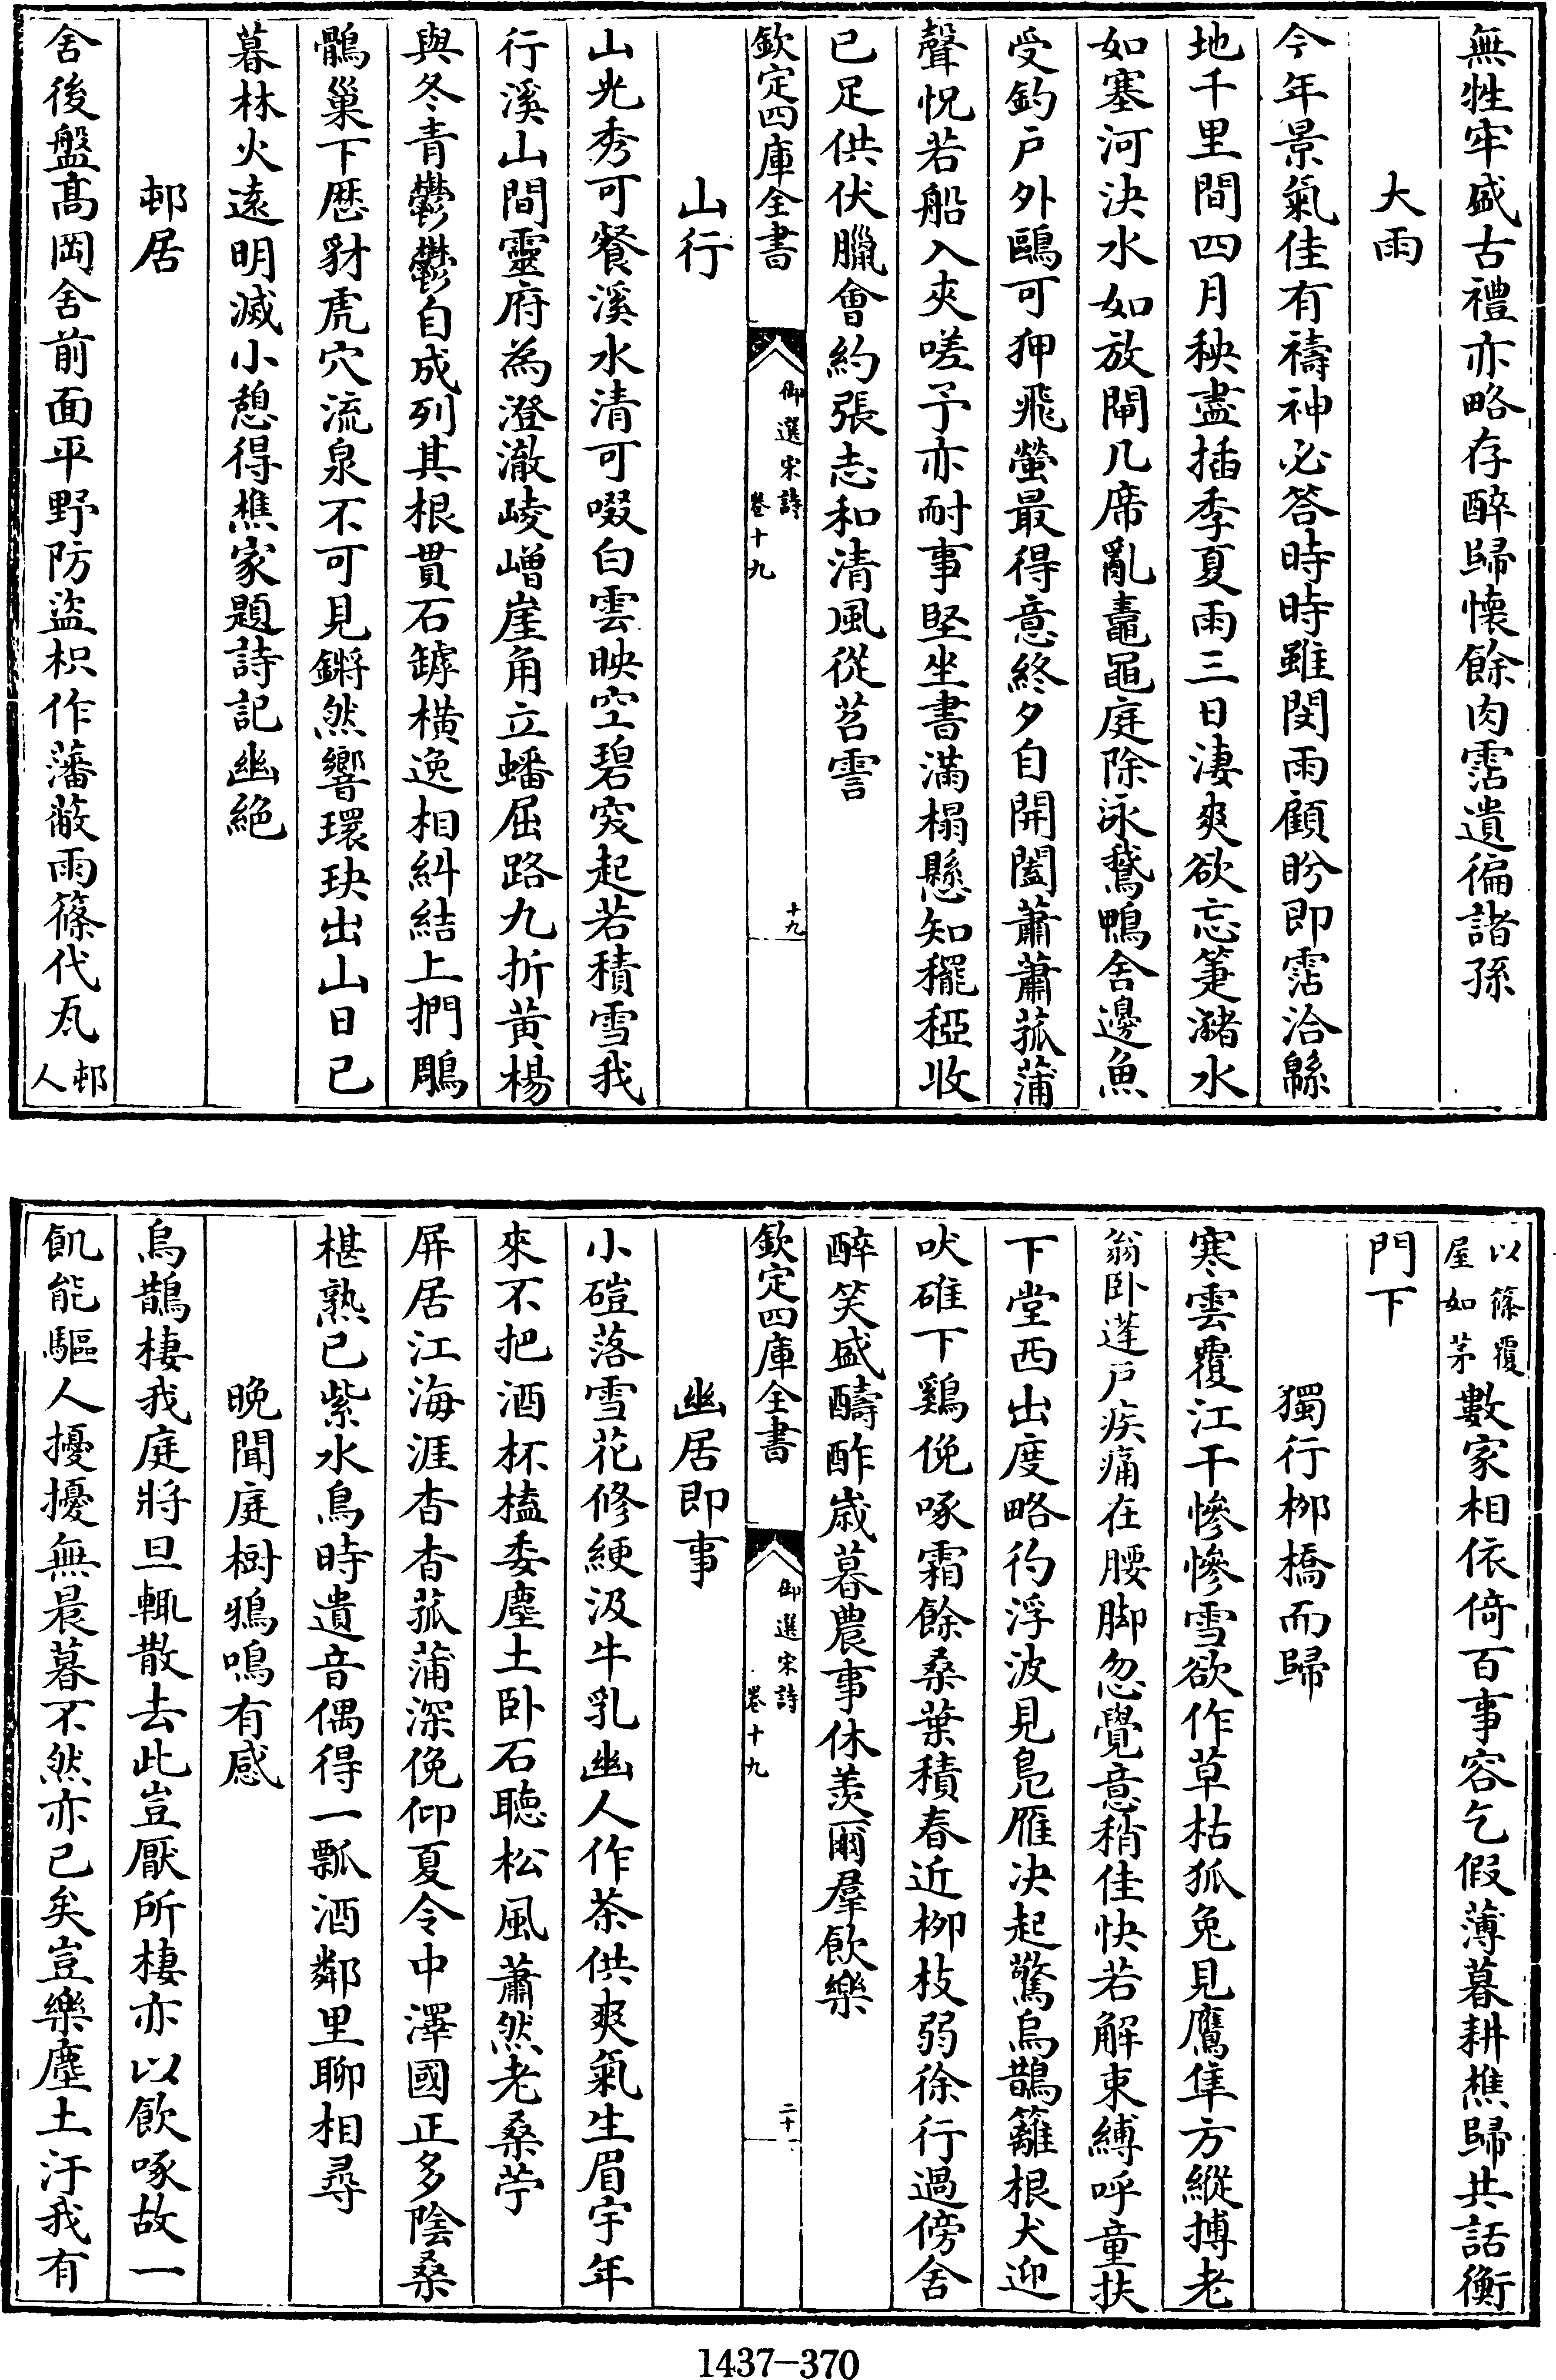 無牲牢盛古禮亦略存醉歸懷餘肉霑遺徧諸孫
大雨
今年景氣佳有禱神必答時時雖閔雨顧盼即霑洽緜
地千里間四月秧盡插季夏雨三日淒爽欲忘箑瀦水
如塞河決水如放閘几席亂鼃黽庭除泳鵞鴨舍邊魚
受釣戶外鷗可狎飛螢最得意終夕自開闔蕭蕭菰蒲
聲怳若船入夾嗟予亦耐事堅坐書滿榻懸知䆉稏收
已足供伏臘會約張志和清風從苕霅
欽定四庫全書
御選宋詩
卷十九
十九
山行
山光秀可餐溪水清可啜白雲映空碧突起若積雪我
行溪山間靈府為澄澈崚嶒崖角立蟠屈路九折黃楊
與冬青鬱鬱自成列其根貫石罅橫逸相糾結上捫鵰
鶻巢下歴豺虎穴流泉不可見鏘然響環玦出山日已
暮林火遠明滅小憩得樵家題詩記幽絕
邨居
舍後盤高岡舍前面平野防盜枳作藩蔽雨篠代瓦
邨
人
以篠覆
屋如茅
數家相依倚百事容乞假薄暮耕樵歸共話衡
門下
獨行栁橋而歸
寒雲覆江干慘慘雪欲作草枯狐兔見鷹隼方縱搏老
翁卧蓬戶疾痛在腰脚忽覺意稍佳快若解束縛呼童扶
下堂西出度略彴浮波見鳬雁决起驚烏鵲籬根犬迎
吠碓下鷄俛啄霜餘桑葉積春近栁枝弱徐行過傍舍
醉笑盛醻酢歲暮農事休羨爾羣飲樂
欽定四庫全書
御選宋詩
卷十九
二十
幽居即事
小磑落雪花修綆汲牛乳幽人作茶供爽氣生眉宇年
來不把酒杯榼委塵土卧石聽松風蕭然老桑苧
屏居江海涯杳杳菰蒲深俛仰夏令中澤國正多陰桑
椹熟已紫水鳥時遺音偶得一瓢酒鄰里聊相尋
晚聞庭樹鴉鳴有感
烏鵲棲我庭將旦輒散去此豈厭所棲亦以飲啄故一
飢能驅人擾擾無晨暮不然亦已矣豈樂塵土汙我有
1437—370